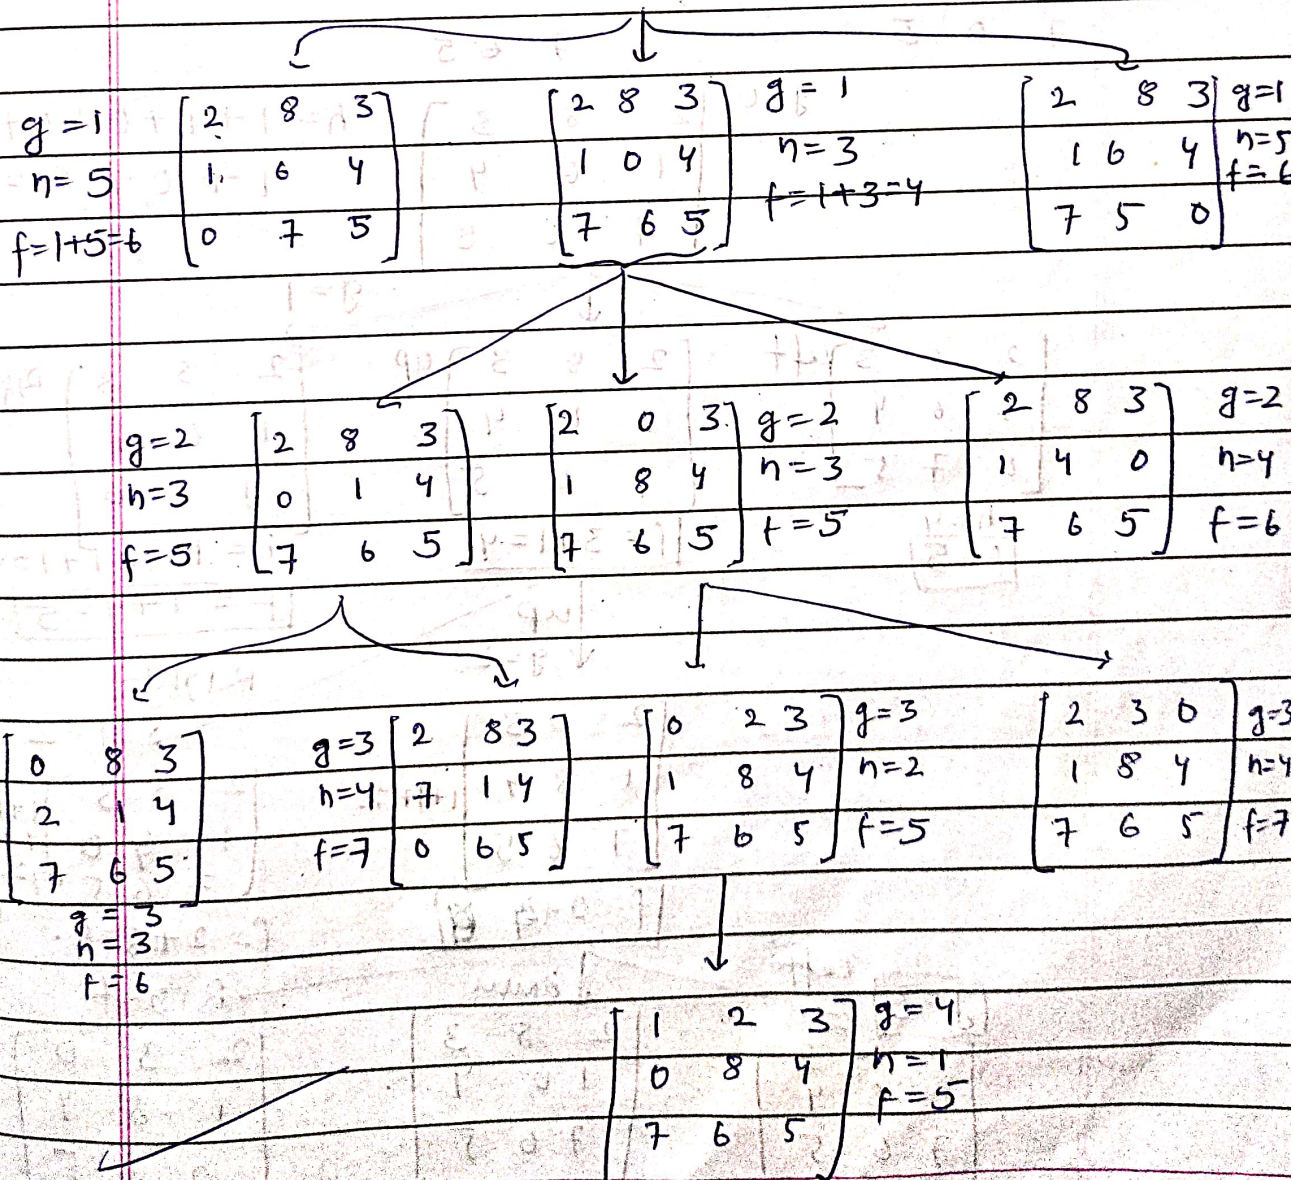 g=1
n=5
f=1+5=6
2 8 3
1 6 4
0 7 5
2 8 3
1 0 4
7 6 5
g=1
n=3
f=1+3=4
2 8 3
1 6 4
7 5 0
g=1
n=5
f=6
g=2
n=3
f=5
2 8 3
0 1 4
7 6 5
2 0 3
1 8 4
7 6 5
g=2
n=3
f=5
2 8 3
1 4 0
7 6 5
g=2
n=4
f=6
0 8 3
2 1 4
7 6 5
g=3
n=3
f=6
g=3
n=4
f=7
2 8 3
7 1 4
0 6 5
0 2 3
1 8 4
7 6 5
g=3
n=2
f=5
2 3 0
1 8 4
7 6 5
g=3
n=4
f=7
1 2 3
0 8 4
7 6 5
g=4
n=1
f=5